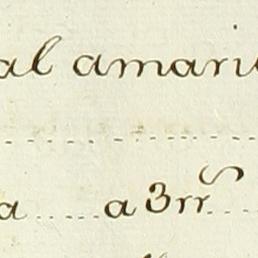 al amari
a .... a 3rrs